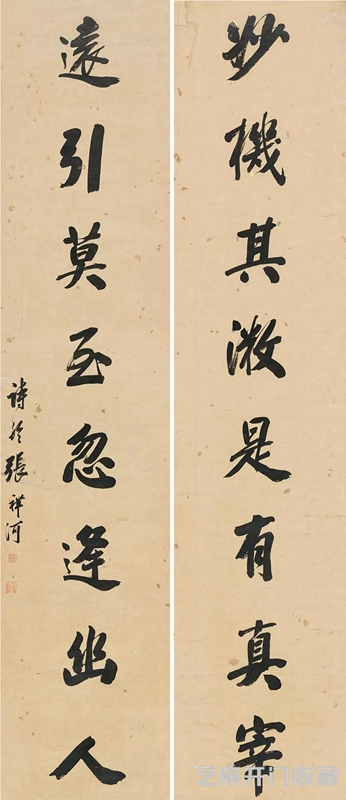 妙機其微是有真宰
遠引莫至忽逢幽人
詩舲張祥河
芝麻开门收藏